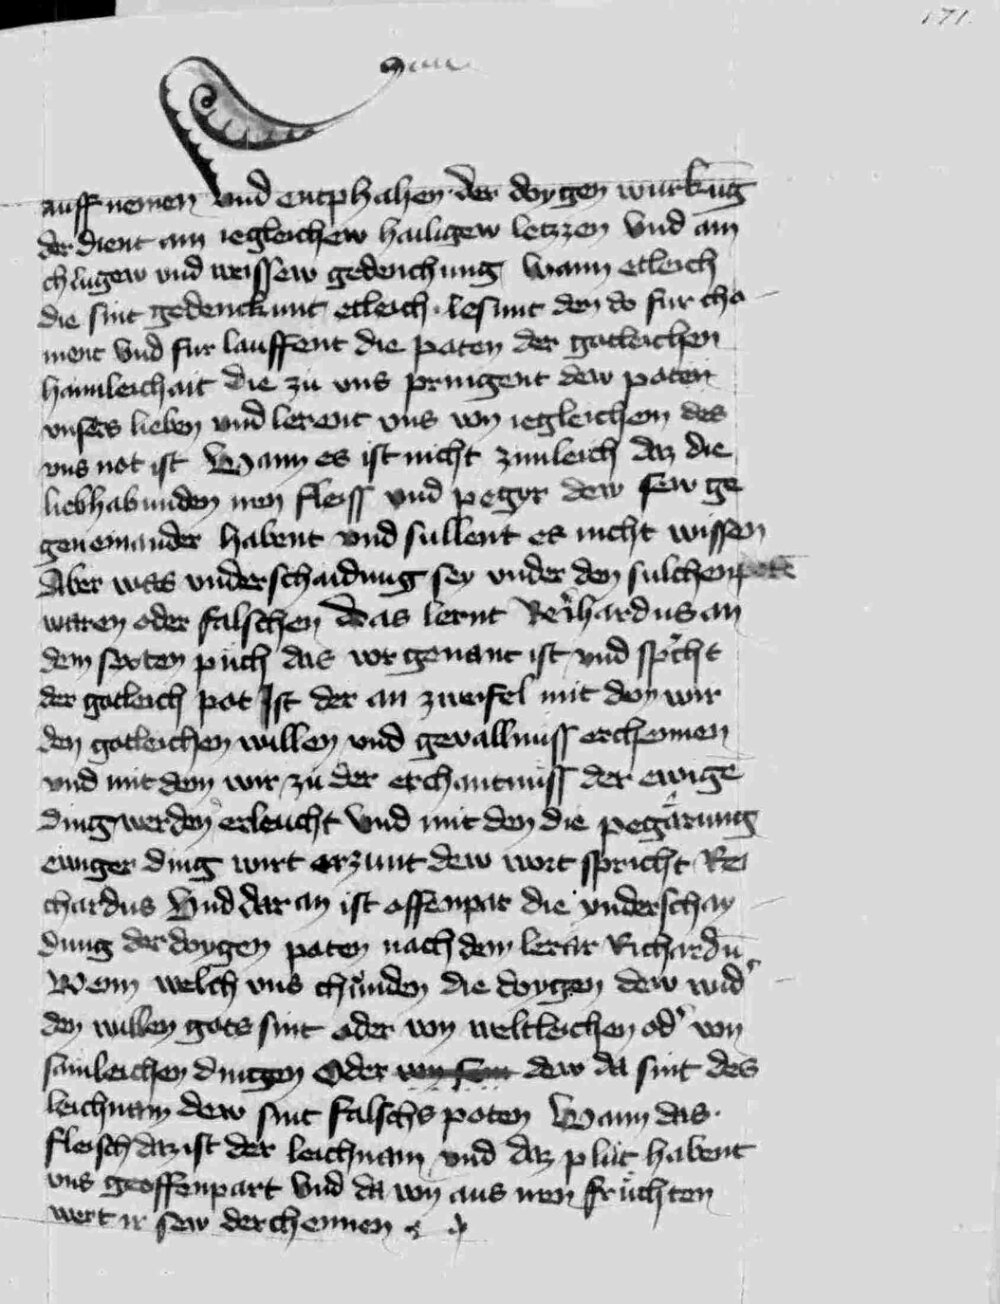 171
auff nemen vnd entphahen der doygen wurkūg
der dient ain iegleichew hailigew letzzen vnd ain
chlugew vnd weissew gedenchung Wann etleich
die sint gedenckunt etleich lesunt den do fur cho
ment vnd fur lauffent die paten der gotleichen
haimleichait die zu vns pringent dew poten
vnsers lieben vnd lerent vns von iegleichem des
vns not ist Wann es ist nicht zimleich daz die
liebhabunden iren fleiss vnd pegir dew sew ge
geneinander habent vnd sullent es nicht wissen
Aber was vnderschaidung sey vnder den sulchen poten
waren oder falschen das lernt Reichardus an
dem sexten puch das vor genant ist vnd spricht
der gotleich pot Ist der an zweifel mit dem wir
den gotleichen willen vnd gevallnuss erchennen
vnd mit dem wir zu der erchantnuss der ewigē
ding werden erleucht vnd mit dem die pegarung
ewiger ding wirt erzunt dew wort spricht Rei
chardus Vnd daran ist offenpar die vnderschay
dung der doygen paten nach dem lerär Richardū
Wenn welch vns chünden die doygen dew wid'
den willen gots sint oder von weltleichen od' von
samleichen dingen Oder dew da sint des
leichnam dew sint falschs poten Wann das
fleisch daz ist der leichnam vnd daz plüt habent
vns geoffenpart Vnd da von aus iren früchten
wert ir sew derchennen